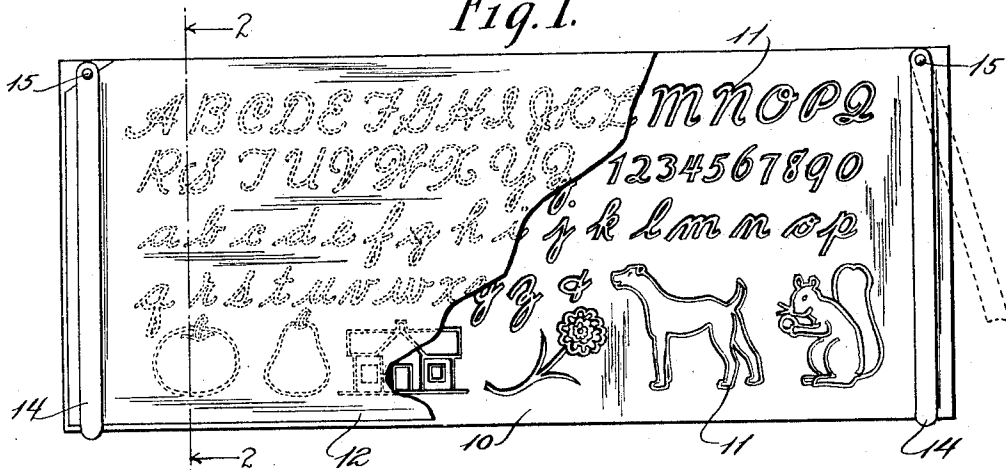 Fig. 1.
2
11
15
15
A B C D E F G H I J K L M N O P Q
R S T U V W X Y Z 1 2 3 4 5 6 7 8 9 0
a b c d e f g h i j k l m n o p
q r s t u v w x y z &
14
12
10
11
14
2